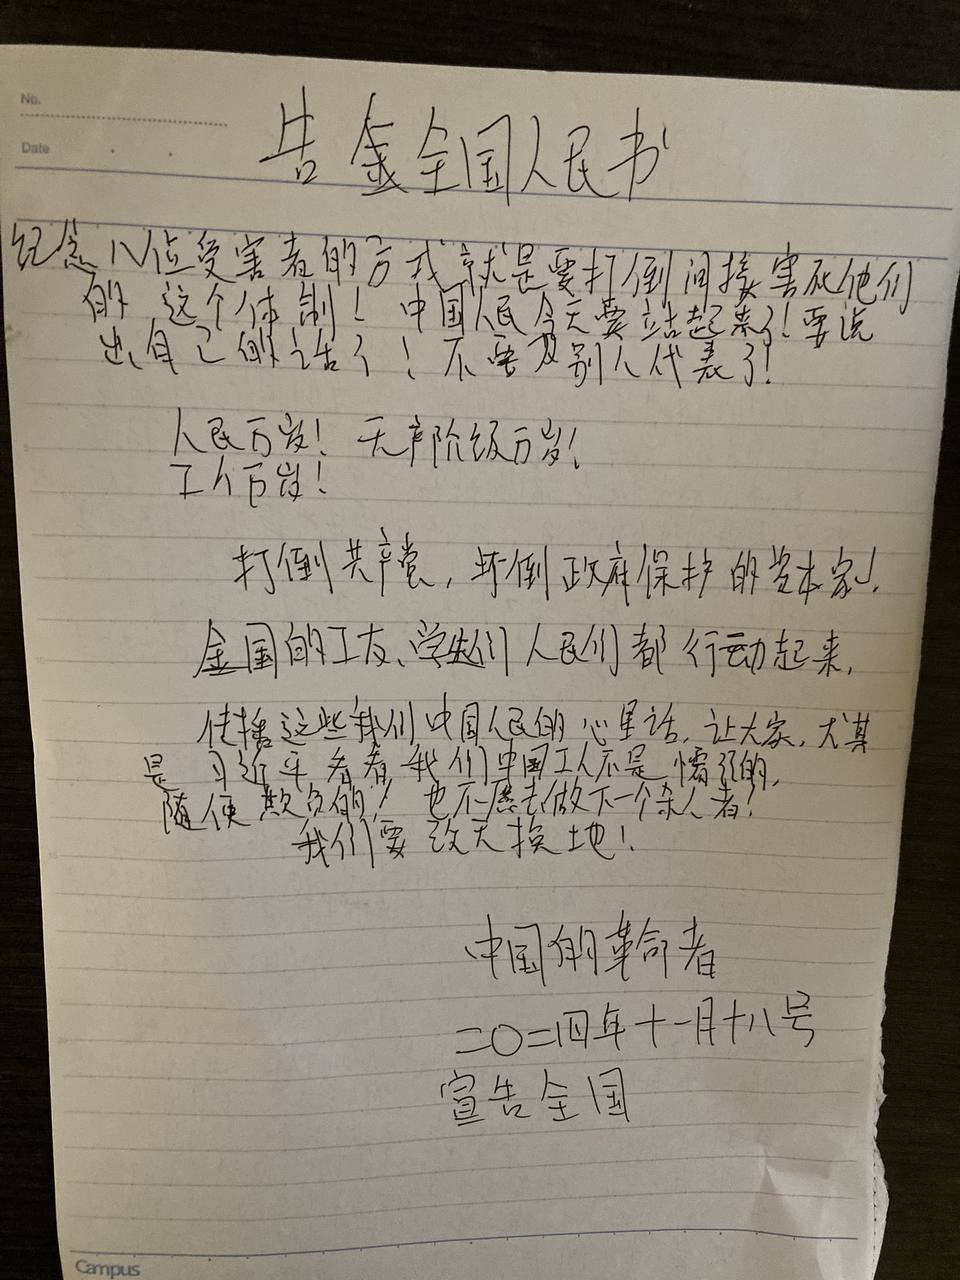 No.
Date
告全国人民书
纪念八位受害者的方式就是要打倒间接害死他们
的这个体制！中国人民今天要站起来了！要说
出自己的话了！不要被别人代表了！
人民万岁！无产阶级万岁！
工人万岁！
打倒共产党，打倒政府保护的资本家！
全国的工友、学生们人民们都行动起来，
传播这些我们中国人民的心里话，让大家，尤其
是习近平看看，我们中国工人不是懦弱的，
随便欺负的！也不愿去做下一个杀人者！
我们要改天换地！
中国的革命者
二〇二四年十一月十八号
宣告全国
Campus